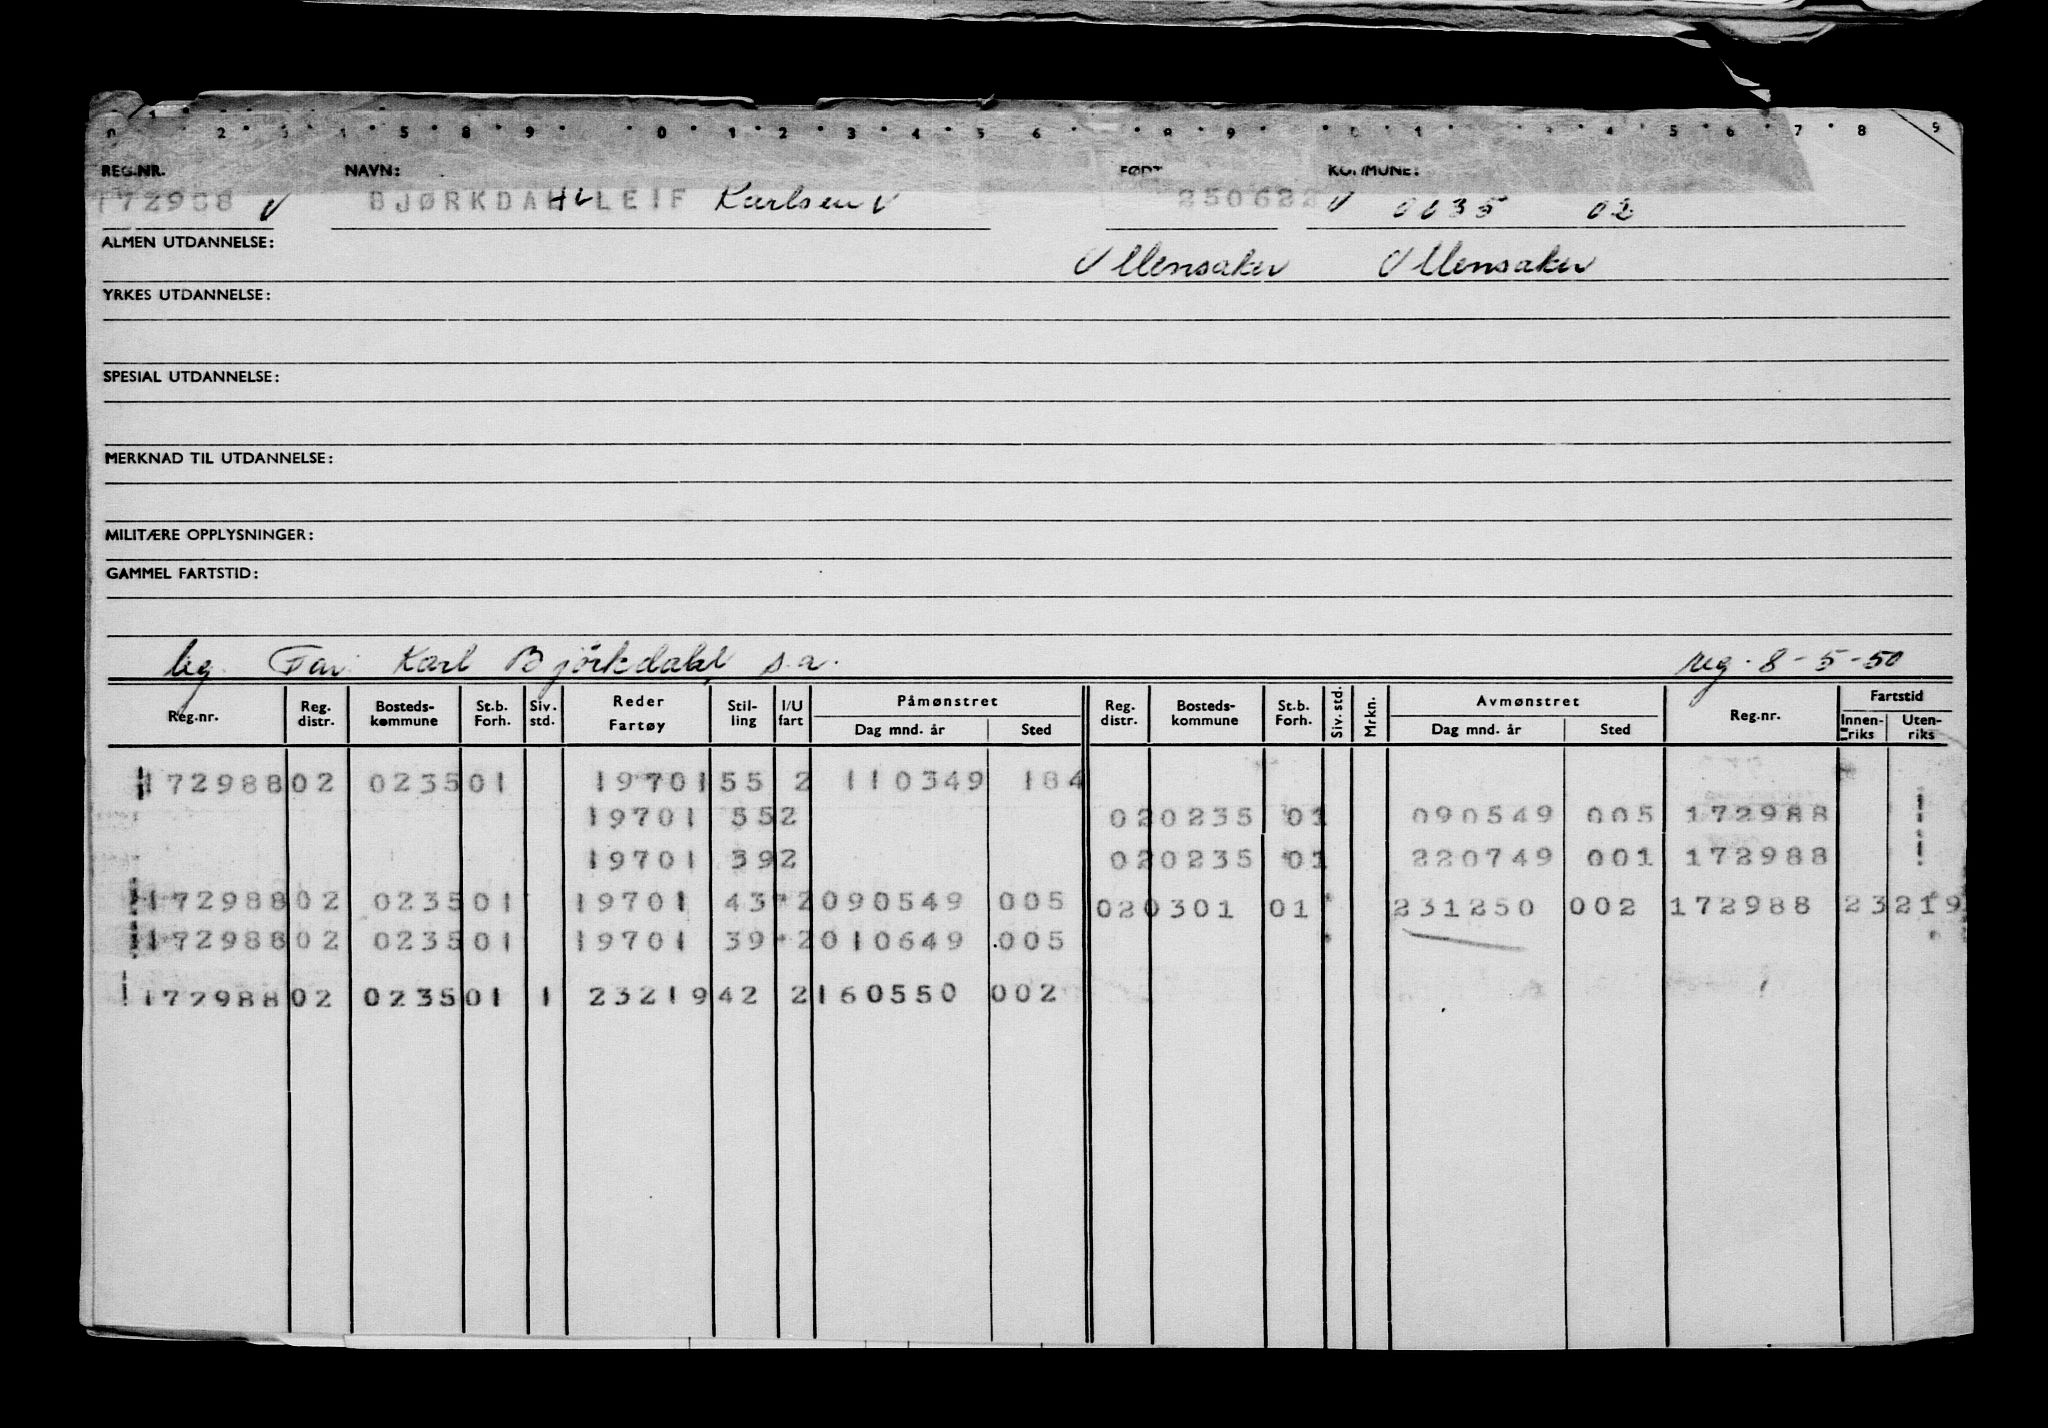 REG.NR. NAVN: FØDT KOMMUNE:
172988 V BJØRKDAHL LEIF Karlsen V 250622 V 0035 02
ALMEN UTDANNELSE: Ullensaker Ullensaker
YRKES UTDANNELSE:
SPESIAL UTDANNELSE:
MERKNAD TIL UTDANNELSE:
MILITÆRE OPPLYSNINGER:
GAMMEL FARTSTID:
leg. Far: Karl Bjørkdahl, s.a. reg. 8-5-50
Reg.nr. Reg. distr. Bosteds-kommune St.b. Forh. Siv. std. Reder Fartøy Stil-ling I/U fart Påmønstret Dag mnd. år Sted Reg. distr. Bosteds-kommune St.b. Forh. Siv. std. Mrkn. Avmønstret Dag mnd. år Sted Reg.nr. Fartstid Innen-riks Uten-riks
172988 02 0235 01 19701 55 2 110349 184
19701 55 2 02 0235 01 090549 005 172988
19701 39 2 02 0235 01 220749 001 172988
172988 02 0235 01 19701 43 2 090549 005 02 0301 01 231250 002 172988 23219
172988 02 0235 01 19701 39 2 010649 005
172988 02 0235 01 1 23219 42 2 160550 002